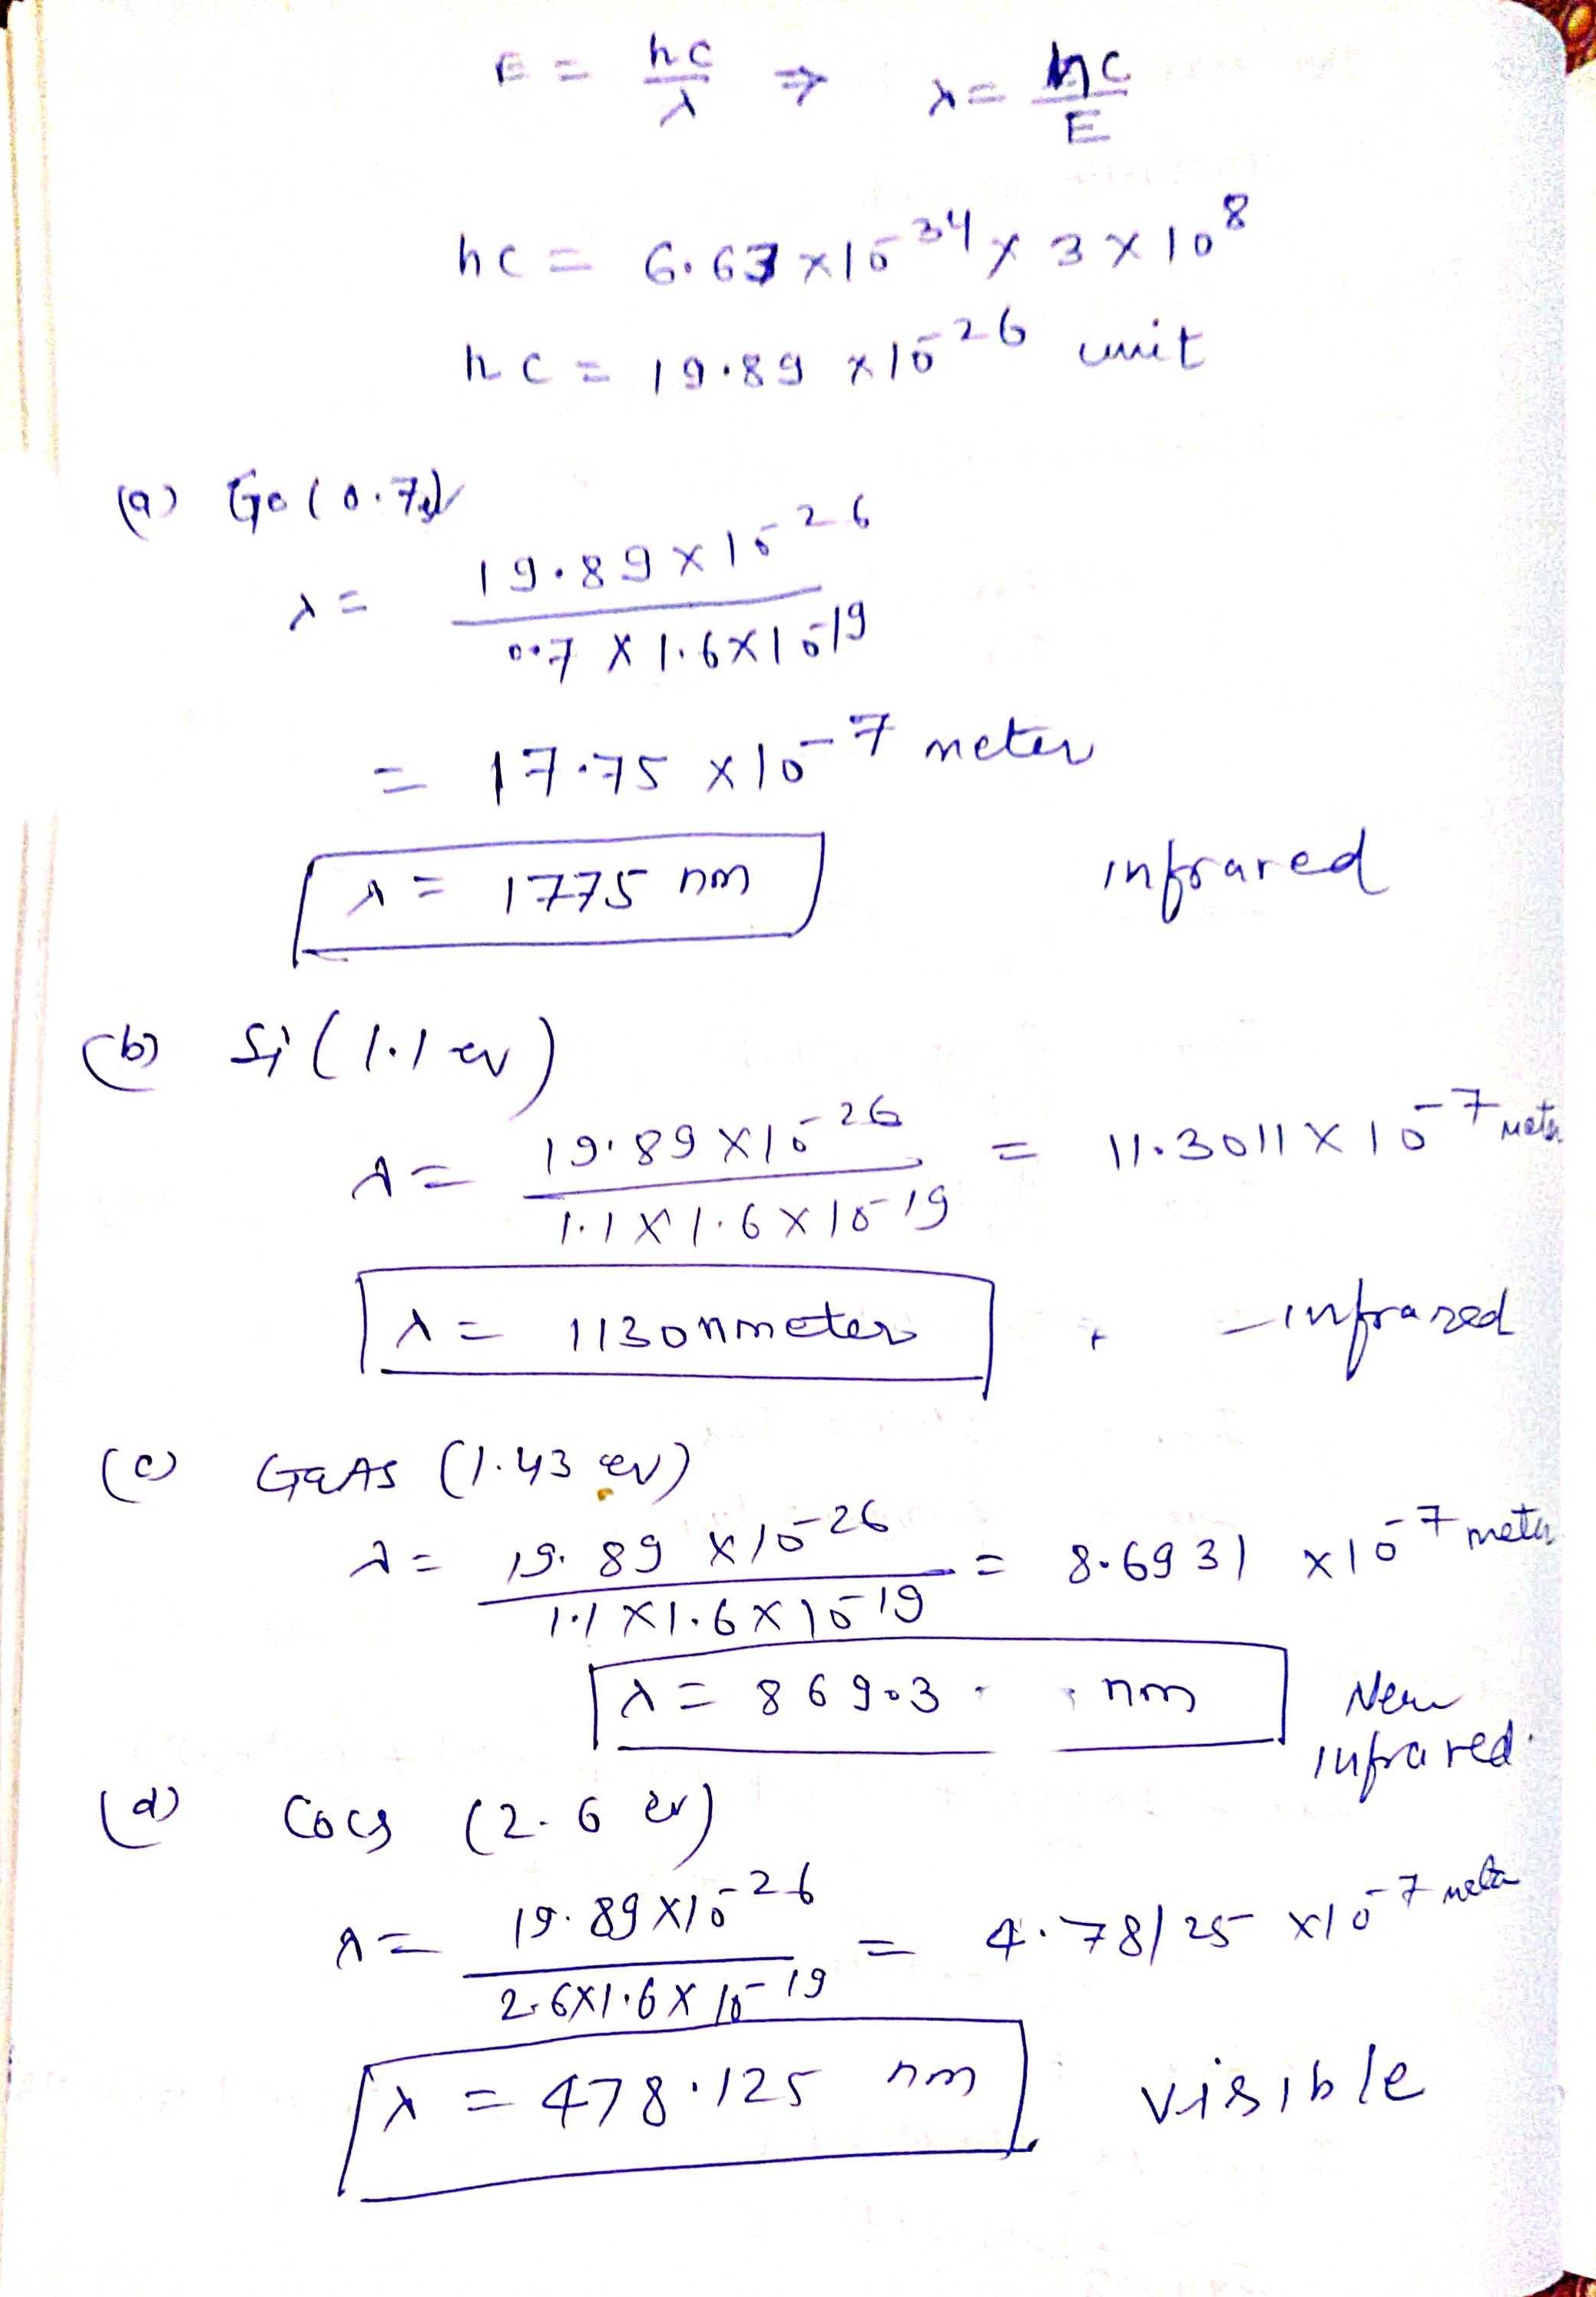 E = hc/λ ⇒ λ = hc/E
hc = 6.63 × 10⁻³⁴ × 3 × 10⁸
hc = 19.89 × 10⁻²⁶ unit
(a) Ge (0.7
λ = 19.89 × 10⁻²⁶ / 0.7 × 1.6 × 10⁻¹⁹
= 17.75 × 10⁻⁷ meter
λ = 1775 nm infrared
(b) Si (1.1 ev)
λ = 19.89 × 10⁻²⁶ / 1.1 × 1.6 × 10⁻¹⁹ = 11.3011 × 10⁻⁷ meter
λ = 1130 nmeter - infrared
(c) GaAs (1.43 ev)
λ = 19.89 × 10⁻²⁶ / 1.1 × 1.6 × 10⁻¹⁹ = 8.6931 × 10⁻⁷ meter
λ = 869.3 nm Near
infrared.
(d) (2.6 ev)
λ = 19.89 × 10⁻²⁶ / 2.6 × 1.6 × 10⁻¹⁹ = 4.78125 × 10⁻⁷ meter
λ = 478.125 nm visible